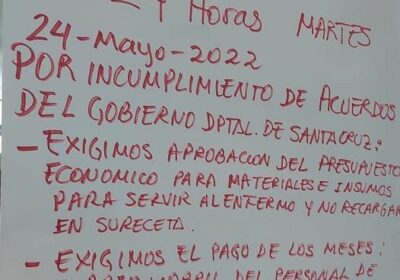 24 Horas MARTES
24-Mayo-2022
POR INCUMPLIMIENTO DE ACUERDOS
DEL GOBIERNO DPTAL. DE SANTACRUZ:
- EXIGIMOS APROBACION DEL PRESUPUESTO
ECONOMICO PARA MATERIALES E INSUMOS
PARA SERVIR AL ENFERMO Y NO RECARGAR
EN SU RECETA.
- EXIGIMOS EL PAGO DE LOS MESES:
DEL PERSONAL DE